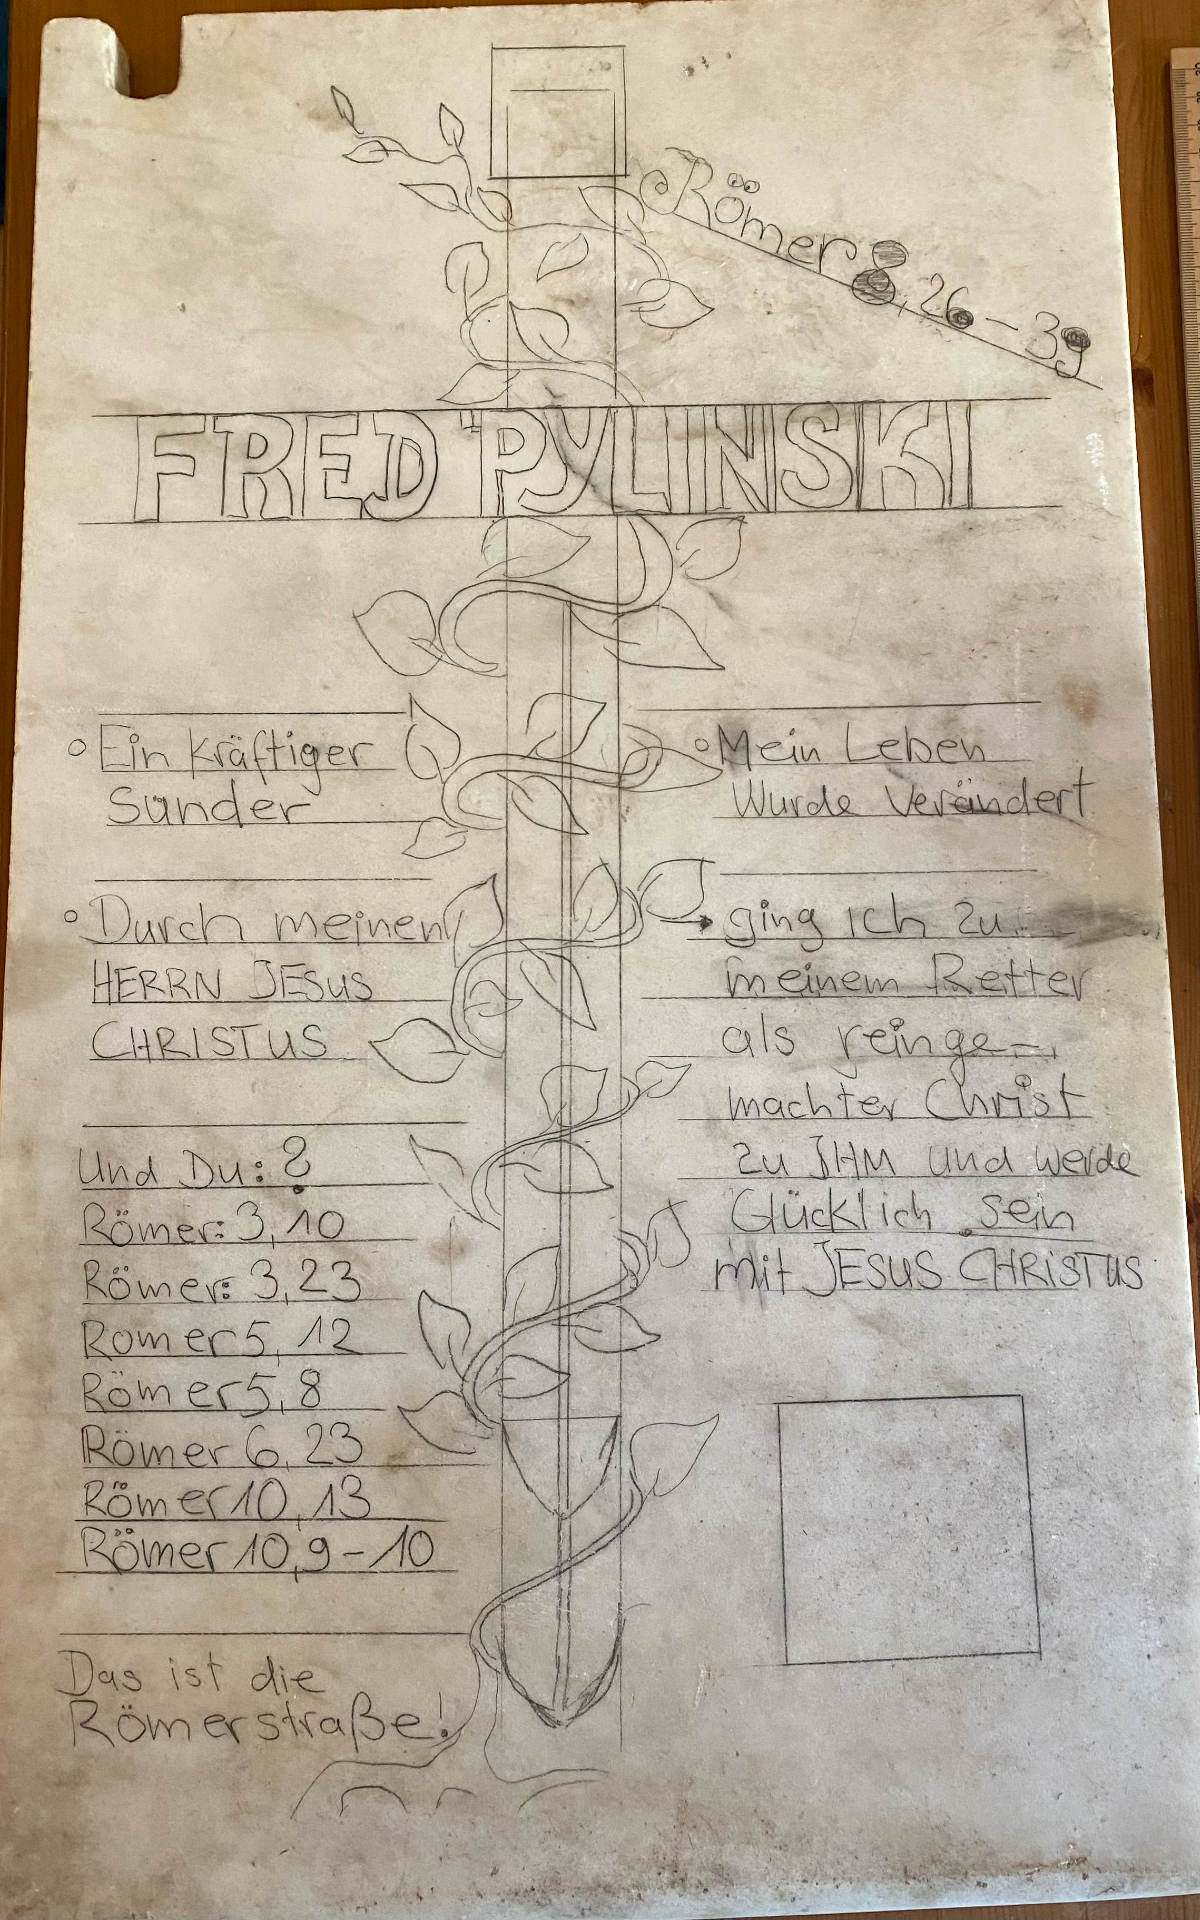 Römer 8, 26-39
FRED PYLINSKI
Ein Kräftiger
Sünder
Durch meinen
HERRN JESUS
CHRISTUS
Und Du: ?
Römer: 3,10
Römer: 3,23
Romer 5, 12
Römer 5, 8
Römer 6, 23
Römer 10, 13
Römer 10, 9-10
Das ist die
Römerstraße!
Mein Leben
Wurde Verändert
ging ich zu
meinem Retter
als reinge-
machter Christ
zu IHM und werde
Glücklich sein
mit JESUS CHRISTUS